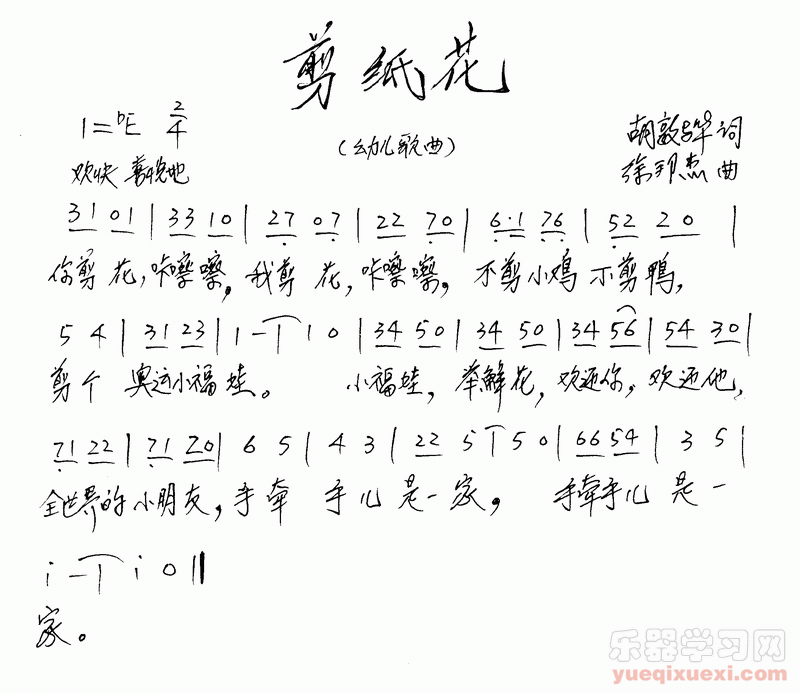 剪纸花
1=♭E 2/4
(幼儿歌曲)
胡敦骅 词
欢快 喜悦地
徐邦杰 曲
31 01 | 33 10 | 27 07 | 22 70 | 6·1 76 | 52 20 |
你剪花,咔嚓嚓,我剪花,咔嚓嚓,不剪小鸡不剪鸭,
5 4 | 31 23 | 1 - | 1 0 | 34 50 | 34 50 | 34 56 | 54 30 |
剪个 奥运小福娃。 小福娃,举鲜花,欢迎你,欢迎他,
71 22 | 71 20 | 6 5 | 4 3 | 22 5 | 5 0 | 66 54 | 3 5 |
全世界的小朋友,手牵 手儿是一家, 手牵手儿 是一
i - | i 0 ||
家。
乐器学习网
yueqixuexi.com